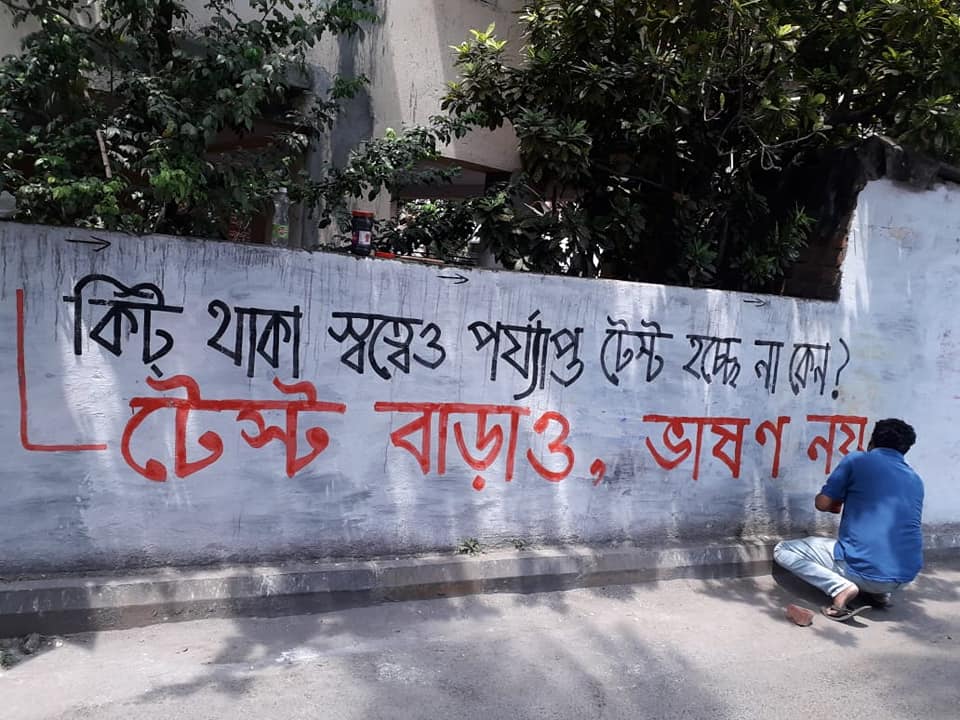 কিট থাকা স্বত্বেও পর্য্যাপ্ত টেস্ট হচ্ছে না কেন?
টেস্ট বাড়াও, ভাষণ নয়